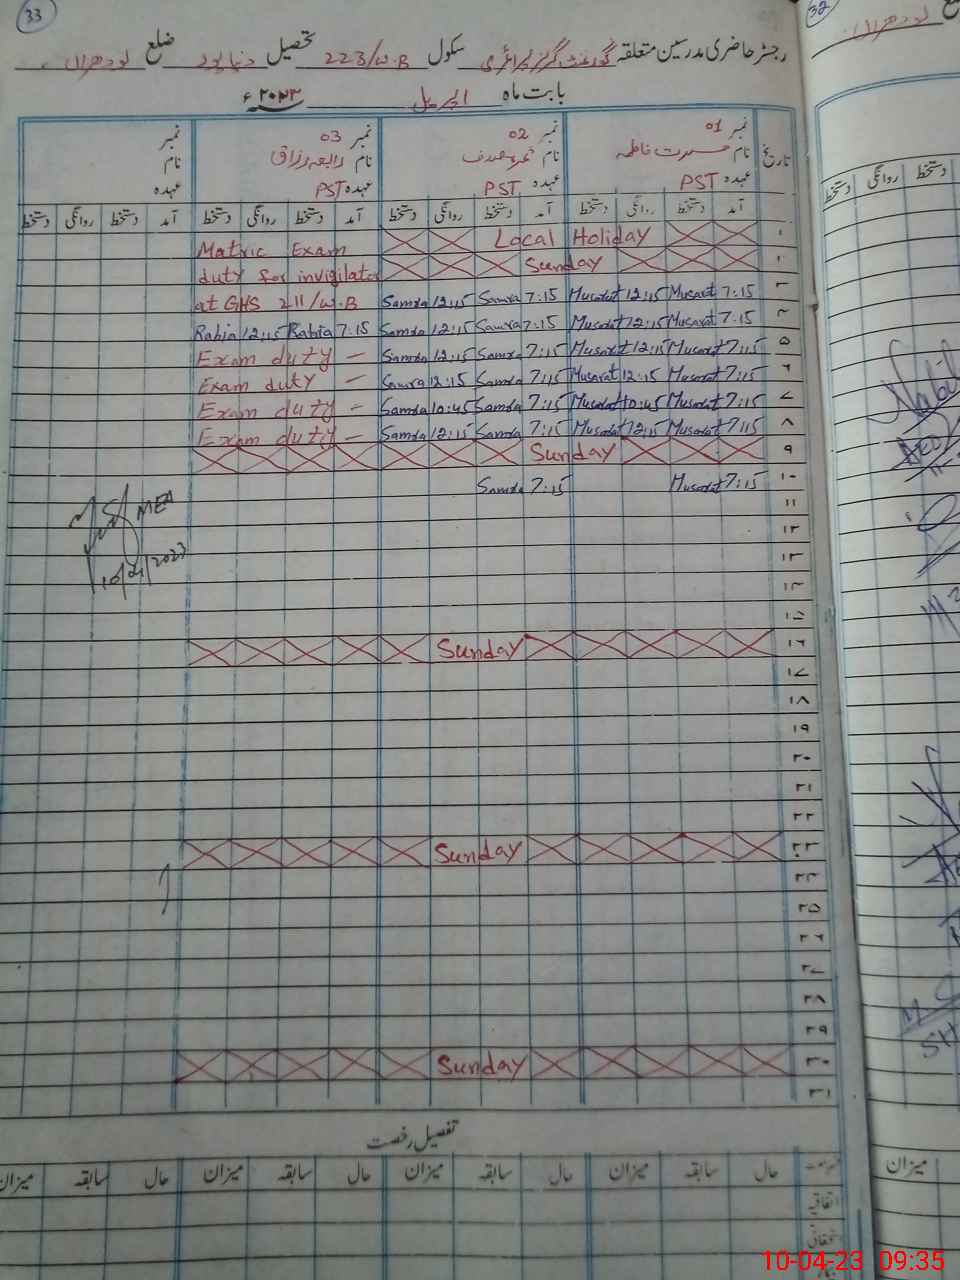 33
32
رجسٹر حاضری مدرسین متعلقہ گورنمنٹ گرلز پرائمری سکول 223/W.B تحصیل دنیاپور ضلع لودھراں
بابت ماہ اپریل ۲۰۲۳ء
تاریخ نمبر 01 نمبر 02 نمبر 03 نمبر
نام مسرت فاطمہ نام ثمرہ صدف نام رابعہ رزاق نام
عہدہ PST عہدہ PST عہدہ PST عہدہ
آمد دستخط روانگی دستخط آمد دستخط روانگی دستخط آمد دستخط روانگی دستخط آمد دستخط روانگی دستخط
دستخط روانگی دستخط
Matric Exam Local Holiday ۱
duty for invigilator Sunday ۲
at GHS 211/W.B Samra 12:15 Samra 7:15 Musarat 12:15 Musarat 7:15 ۳
Rabia 12:15 Rabia 7:15 Samra 12:15 Samra 7:15 Musarat 12:15 Musarat 7:15 ۴
Exam duty — Samra 12:15 Samra 7:15 Musarat 12:15 Musarat 7:15 ۵
Exam duty — Samra 12:15 Samra 7:15 Musarat 12:15 Musarat 7:15 ۶
Exam duty — Samra 10:45 Samra 7:15 Musarat 10:45 Musarat 7:15 ۷
Exam duty — Samra 12:15 Samra 7:15 Musarat 12:15 Musarat 7:15 ۸
Sunday ۹
Samra 7:15 Musarat 7:15 ۱۰
MEA
10/04/2023
۱۱
۱۲
۱۳
۱۴
۱۵
Sunday ۱۶
۱۷
۱۸
۱۹
۲۰
۲۱
۲۲
Sunday ۲۳
۲۴
۲۵
۲۶
۲۷
۲۸
۲۹
Sunday ۳۰
۳۱
تفصیل رخصت
حال سابقہ میزان حال سابقہ میزان حال سابقہ میزان حال سابقہ میزان
میزان
اتفاقیہ
استحقاقی
10-04-23 09:35